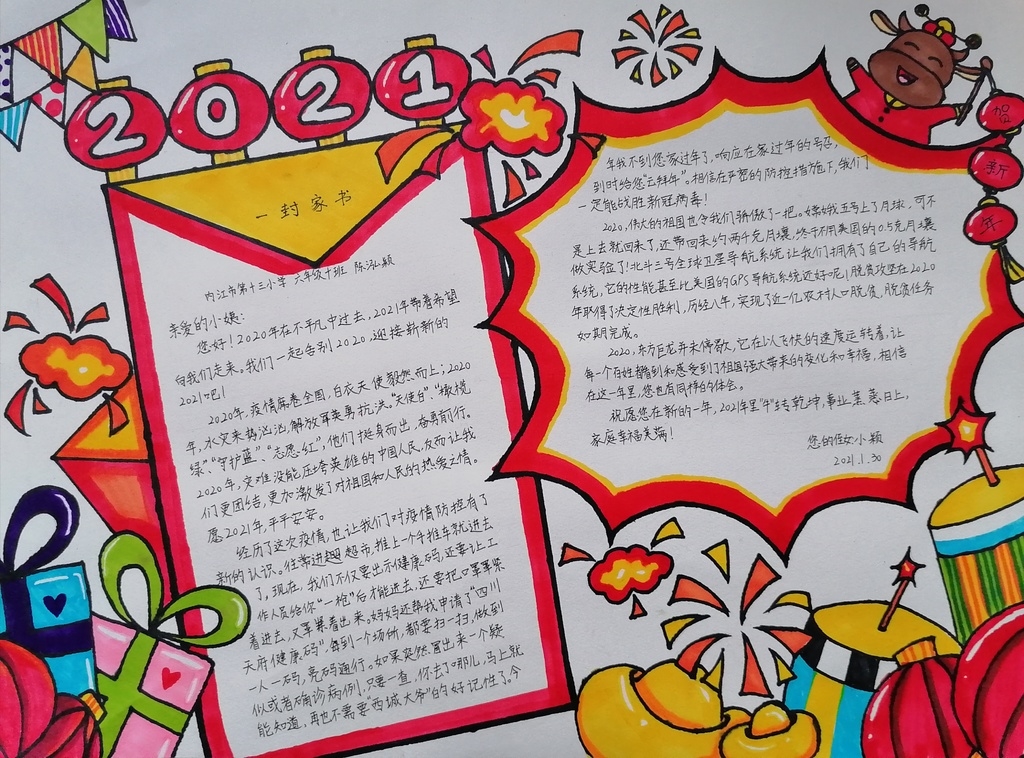 2021
一封家书
内江市第十三小学 六年级十班 陈泓颖
亲爱的小姨:
您好!2020年在不平凡中过去,2021年带着希望
向我们走来。我们一起告别2020,迎接崭新的
2021吧!
2020年,疫情席卷全国,白衣天使毅然而上;2020
年,水灾来势汹汹,解放军英勇抗洪。“天使白”、“橄榄
绿”、“守护蓝”、“志愿红”,他们挺身而出,奋勇前行。
2020年,灾难没能压垮英雄的中国人民,反而让我
们更团结,更加激发了对祖国和人民的热爱之情。
愿2021年,平平安安。
经历了这次疫情,也让我们对疫情防控有了
新的认识。往常进趟超市,推上一个手推车就进去
了,现在,我们不仅要出示健康码,还要让工
作人员给你“一枪”后才能进去,还要把口罩罩紧
着进去,又罩紧着出来。妈妈还帮我申请了“四川
天府健康码”,每到一个场所,都要扫一扫,做到
一人一码,亮码通行。如果突然冒出来一个疑
似或者确诊病例,只要一查,你去了哪儿,马上就
能知道,再也不需要“西城大爷”的好记性了。今
年我不到您家过年了,响应在家过年的号召,
到时给您“云拜年”。相信在严密的防控措施下,我们
一定能战胜新冠病毒!
2020,伟大的祖国也令我们骄傲了一把。嫦娥五号上了月球,可不
是上去就回来了,还带回来约两千克月壤,终于不用美国的0.5克月壤
做实验了!北斗三号全球卫星导航系统让我们拥有了自己的导航
系统,它的性能甚至比美国的GPS导航系统还好呢!脱贫攻坚在2020
年取得了决定性胜利,历经八年,实现了近一亿农村人口脱贫,脱贫任务
如期完成。
2020,东方巨龙并未停歇,它在以人飞快的速度运转着,让
每一个百姓看到和感受到了祖国强大带来的变化和幸福,相信
在这一年里,您也有同样的体会。
祝愿您在新的一年,2021年里“牛”转乾坤,事业蒸蒸日上,
家庭幸福美满!
您的侄女小颖
2021.1.30
贺
新
年